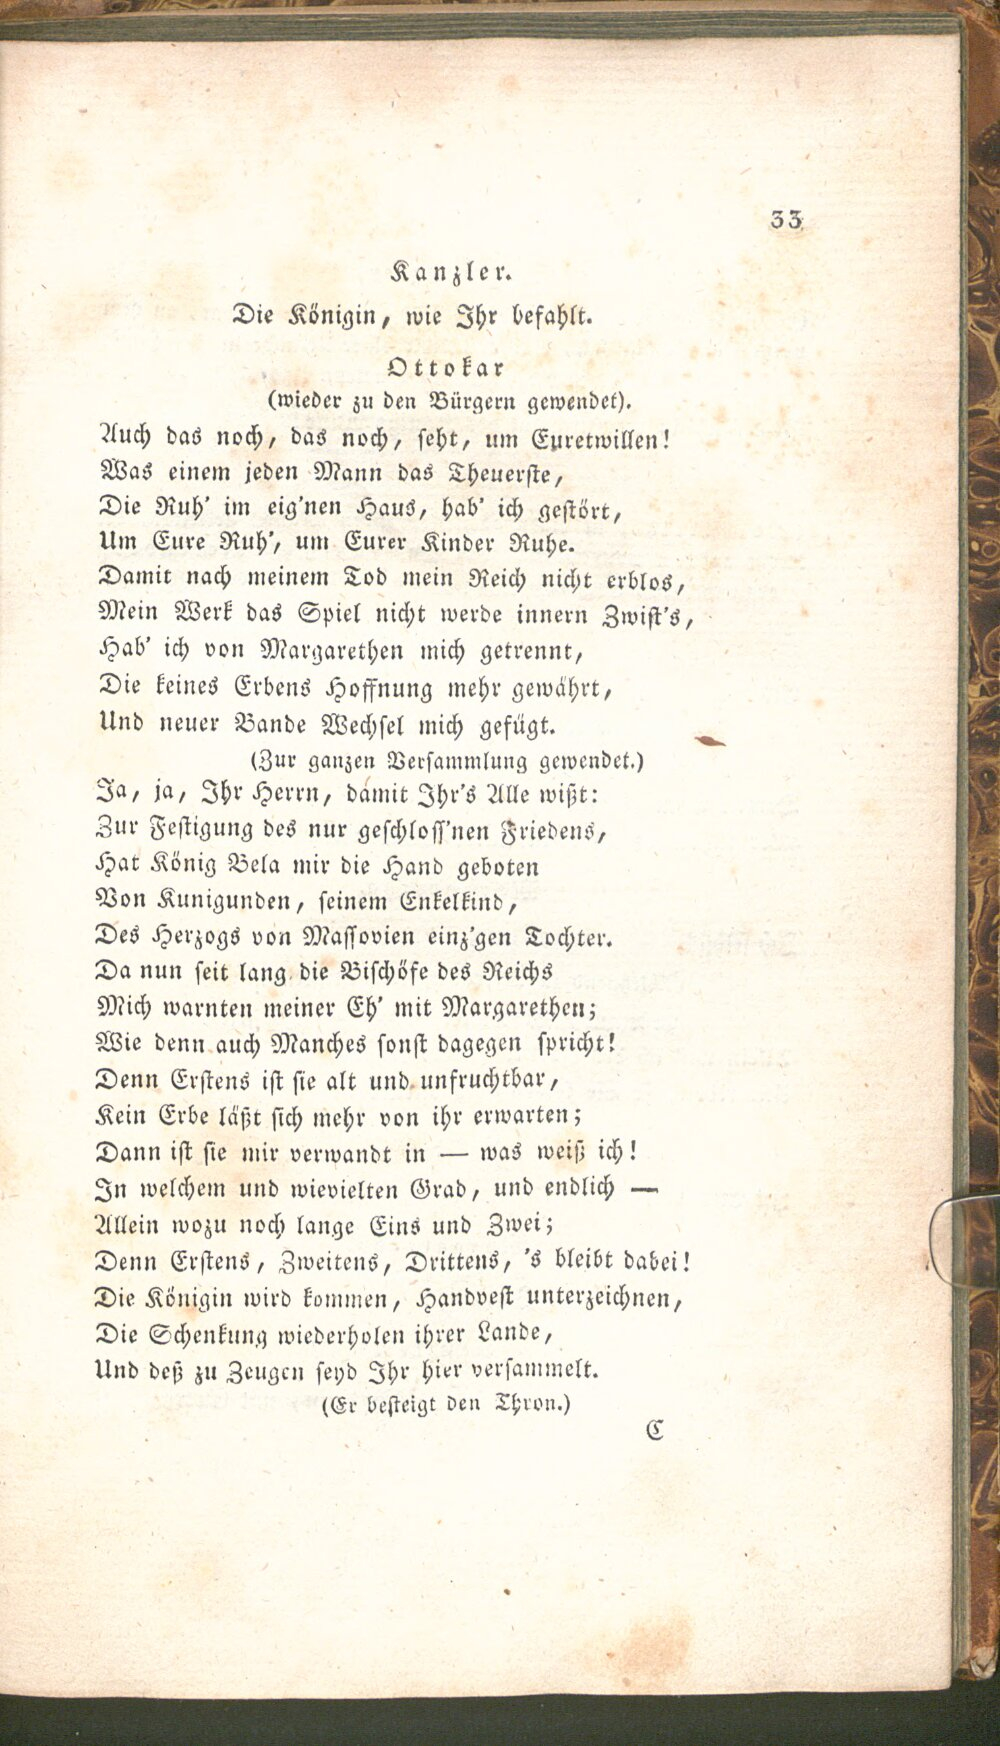 33
Kanzler.
Die Königin, wie Ihr befahlt.
Ottokar
(wieder zu den Bürgern gewendet).
Auch das noch, das noch, seht, um Euretwillen!
Was einem jeden Mann das Theuerste,
Die Ruh' im eig'nen Haus, hab' ich gestört,
Um Eure Ruh', um Eurer Kinder Ruhe.
Damit nach meinem Tod mein Reich nicht erblos,
Mein Werk das Spiel nicht werde innern Zwist's,
Hab' ich von Margarethen mich getrennt,
Die keines Erbens Hoffnung mehr gewährt,
Und neuer Bande Wechsel mich gefügt.
(Zur ganzen Versammlung gewendet.)
Ja, ja, Ihr Herrn, damit Ihr's Alle wißt:
Zur Festigung des nur geschloss'nen Friedens,
Hat König Bela mir die Hand geboten
Von Kunigunden, seinem Enkelkind,
Des Herzogs von Massovien einz'gen Tochter.
Da nun seit lang die Bischöfe des Reichs
Mich warnten meiner Eh' mit Margarethen;
Wie denn auch Manches sonst dagegen spricht!
Denn Erstens ist sie alt und unfruchtbar,
Kein Erbe läßt sich mehr von ihr erwarten;
Dann ist sie mir verwandt in — was weiß ich!
In welchem und wievielten Grad, und endlich —
Allein wozu noch lange Eins und Zwei;
Denn Erstens, Zweitens, Drittens, 's bleibt dabei!
Die Königin wird kommen, Handvest unterzeichnen,
Die Schenkung wiederholen ihrer Lande,
Und deß zu Zeugen seyd Ihr hier versammelt.
(Er besteigt den Thron.)
C